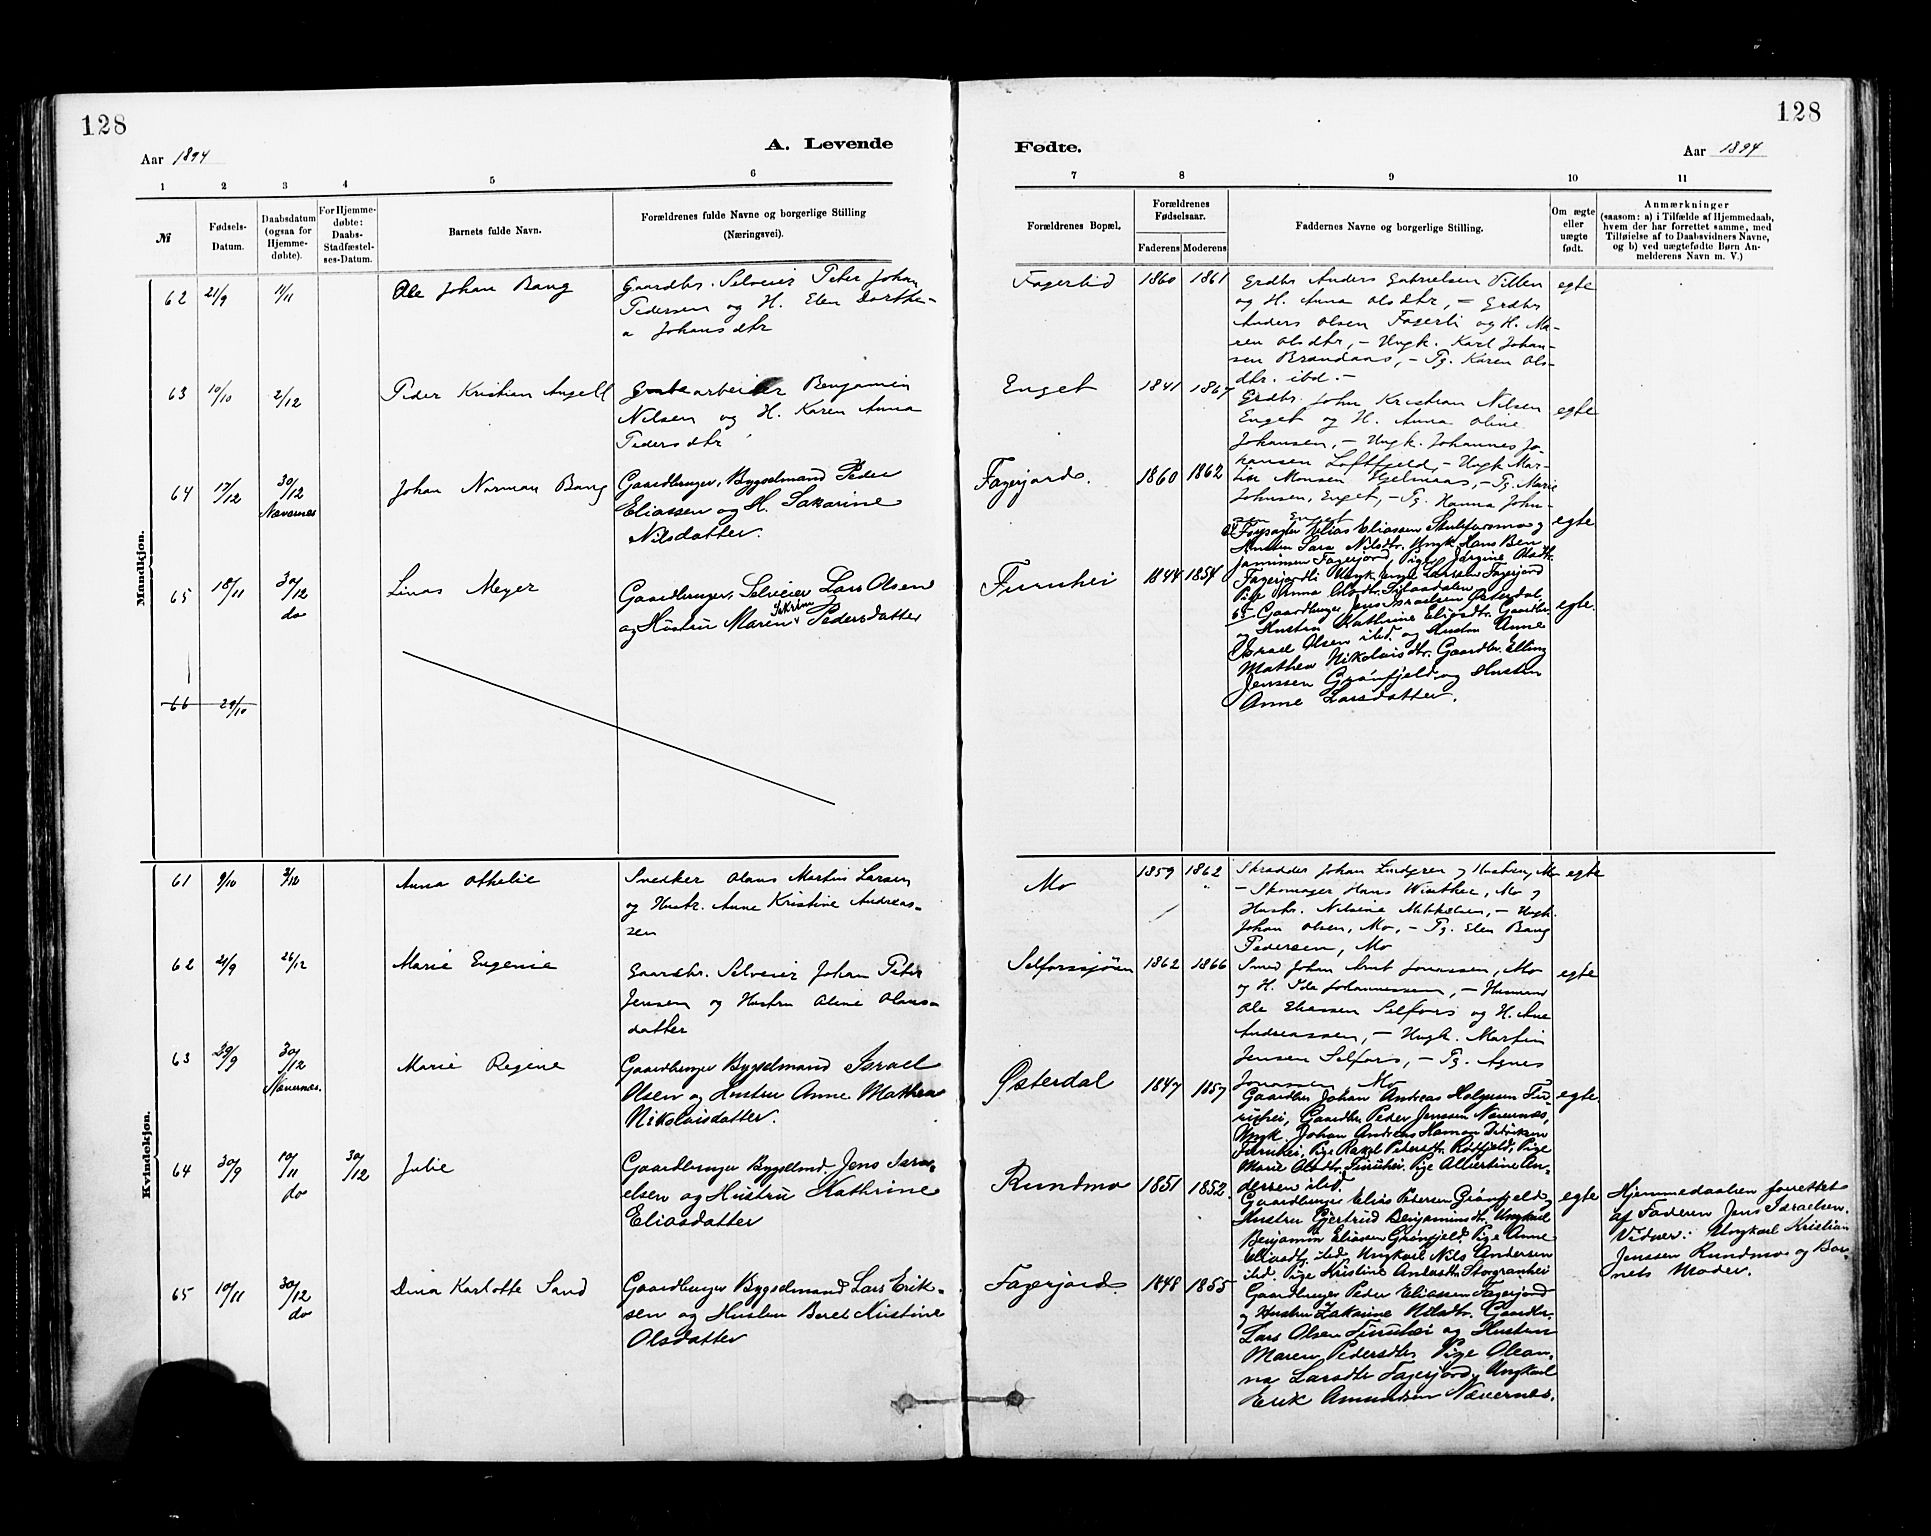 128
Aar 1894
A. Levende
1 2 3 4 5 6
№
Fødsels-Datum.
Daabsdatum (ogsaa for Hjemme-døbte).
For Hjemme-døbte: Daabs-Stadfæstel-ses-Datum.
Barnets fulde Navn.
Forældrenes fulde Navne og borgerlige Stilling
(Næringsvei).
Mandkjøn.
62 21/9 11/11 Ole Johan Bang
Gaardbr. Selveier Peter Johan
Pedersen og H. Elen Dorthe-
a Johansdtr
63 10/10 2/12 Peder Kristian Angell
arbeider Benjamin
Nilsen og H. Karen Anna
Pedersdtr
64 17/12 30/12 Nævernes Johan Norman Bang
Gaardbruger, Bygselmand Peder
Eliassen og H. Sakarine
Nilsdatter.
65 18/11 30/12 do Linas Meyer
Gaardbruger, Selveier Lars Olsen
og Hustru Maren Pedersdatter
66 29/10
Kvindekjøn.
61 9/10 2/12 Anna Othelie
Snedker Olaus Martin Larsen
og Hustr. Anne Kristine Andreas-
sen
62 21/9 26/12 Marie Eugenie
Gaardbr. Selveier Johan Peter
Jensen og Hustru Oline Olaus-
datter
63 29/9 30/12 Nævernes. Marie Regine
Gaardbruger Bygselmand Israel
Olsen og Hustru Anne Mathea
Nikolaisdatter.
64 30/9 10/11 do 30/12 Julie
Gaardbruger Bygselmd. Jens Isra-
elsen og Hustru Kathrine
Eliasdatter
65 10/11 30/12 do Dina Karlotte Sand
Gaardbruger Bygselmand Lars Erik-
sen og Hustru Beret Kristine
Olsdatter
128
Fødte.
Aar 1894
7 8 9 10 11
Forældrenes Bopæl.
Forældrenes Fødselsaar.
Faderens Moderens
Faddernes Navne og borgerlige Stilling.
Om ægte eller uægte født.
Anmærkninger
(saasom: a) i Tilfælde af Hjemmedaab,
hvem der har forrettet samme, med
Tilføielse af to Daabsvidners Navne,
og b) ved uægtefødte Børn An-
melderens Navn m. V.)
Fagerlid 1860 1861 egte
Grdbr Anders Gabrielsen
og H. Anna Olsdtr, – Grdbr
Anders Olsen Fagerli og H. Ma-
ren Olsdtr, – Ungk. Karl Johan-
sen Brandaas, – Pg. Karen Ols-
dtr. ibd. –
Enget 1841 1867 egte
Grdbr. John Kristian Nilsen
Enget og H. Anna Oline
Johansen, – Ungk. Johannes Jo-
hansen Loftfjeld, – Ungk Mar-
tin Monsen Hjelmaas, – Pg. Marie
Johnsen, Enget, – Pg. Hanna John-
sen Enget
Fagerjord. 1860 1862 egte
Elias Eliassen og
Sara Nilsdtr. Ungk Hans Ben
jaminsen Fagerjord, Pige Jørgine Olsdtr.
Fagerjordli Ungk Larsen Fagerjord
Pige Anna Olsdtr.
Furuhei 1844 1854 egte.
65 Gaardbruger Jens Israelsen Østerdal
og Hustru Kathrine Eliasdtr. Gaardbr.
Israel Olsen ibd. og Hustru Anne
Mathea Nikolaisdtr. Gaardbr. Elling
Jenssen Grønfjeld og Hustru
Anne Larsdatter.
Mo 1859 1862 egte
Skrædder Johan Lindgren og Hustru, Mo
– Skomager Hans Winther, Mo og
Hustr. Nilsine Mikkelsen, – Ungk.
Johan Olsen, Mo, – Pg. Elen Bang
Pedersen, Mo
Selforssjøen 1862 1866 egte
Smed Johan Arnt Jonassen, Mo
og H. Ida Johannessen, – Husmand
Ole Eliassen Selfors og H. Ane
Andreassen, – Ungk. Martin
Jensen Selfors, – Pg. Agnes
Jonassen, Mo
Østerdal 1847 1857 egte.
Gaardbr Johan Andreas Holgersen Fu-
ruhei, Gaardbr Peder Jenssen Nævernes,
Ungk. Johan Andreas
Furuhei, Pige Rakel Pedersdtr. Rødfjeld, Pige
Marie Olsdtr. Furuhei, Pige Albertine An-
dersen ibd.
Rundmo 1851 1852. egte
Gaardbruger Elias Pedersen Grønfjeld og
Hustru Gjertrud Benjaminsdtr. Ungkarl
Benjamin Eliassen Grønfjeld. Pige Anne
Eliasdtr. ibd. Ungkarl Nils Andersen
ibd. Pige Kristine Andersdtr Storgranhei
Hjemmedaaben forrettet
af Faderen Jens Israelsen.
Vidner: Ungkarl Kristian
Jenssen Rundmo og Bar-
nets Moder.
Fagerjord 1848 1855 egte
Gaardbruger Peder Eliassen Fagerjord
og Hustru Zakarine Nilsdtr. Gaardbr.
Lars Olsen Furuhei og Hustru
Maren Pedersdtr, Pige Olean-
na Larsdtr Fagerjord, Ungkarl
Erik Amundsen Nævernes.